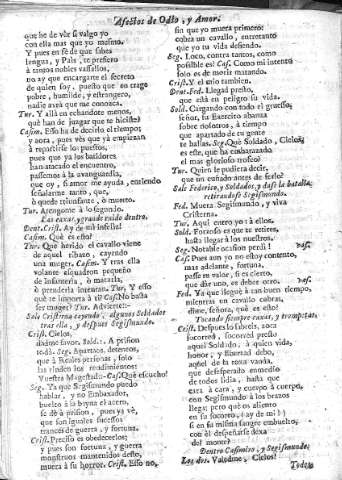 Afectos de Odio, y Amor.
que he de vèr si valgo yo
con ella mas que yo mismo.
Y pues en fe de que sabes
lengua, y Pais, te prefiero
à tantos nobles vassallos,
no ay que encargarte el secreto
de quien soy, puesto que no trago
pobre, humilde, y estrangero,
nadie avrà que me conozca.
Tur. Y allà en echandote menos,
què han de juzgar que te hiciste?
Casim. Esso ha de decirlo el tiempo
y aora, pues vès que yà empiezan
à repartirse los puestos,
pues que yà los batidores
han atacado el encuentro,
passemos à la avanguardia,
que oy, si amor me ayuda, entiendo
señalarme tanto, que,
ò quede triunfante, ò muerto.
Tur. Atengome à lo segundo.
Las caxas, y grande ruido dentro.
Dent. Crist. Ay de mi infelice!
Casim. Què es esso?
Tur. Que herido el cavallo viene
de aquel ribazo, cayendo
una muger. Casim. Y tras ella
volante esquadron pequeño
de infanteria, ò matarla,
ò prenderla intenta. Tur. Y esso
què te importa à ti? Cas. No basta
ser muger? Tur. Advierte:-
Sale Cristerna cayendo, algunos Soldados
tras ella, y despues Segismundo.
Crist. Cielos,
dadme favor. Sold. 1. A prision
te dà. Seg. Apartaos, deteneos,
que à Reales personas, solo
las rinden los rendimientos:
Vuestra Magestad:- Cas. Què escucho!
Seg. Ya que Segismundo puedo
hablar, y no Embaxador,
buelto à la bayna el acero,
se dè à prision, pues yà vè,
que son iguales sucessos
trances de guerra, y fortuna.
Crist. Preciso es obedecerlos;
y pues son fortuna, y guerra
monstruos mantenidos desto,
muera à su horror. Crist. Esso no,
sin que yo muera primero:
cobra un cavallo, entretanto
que yo tu vida defiendo.
Seg. Loco, contra tantos, como
possible es? Cas. Como mi intento
solo es de morir matando.
Crist. Y el mio tambien.
Dent. Fed. Llegad presto,
que està en peligro su vida.
Sold. Cargando con todo el gruesso,
señor, su Exercito abanza
sobre nosotros, à tiempo
que apartado de tu gente
te hallas. Seg. Què Soldado, Cielos,
es este, que ha embarazado
el mas glorioso trofeo?
Tur. Quien le pudiera decir,
que un cuñado antes de serlo?
Sale Federico, y Soldados, y dase la batalla,
retirandose Segismundo.
Fed. Muera Segismundo, y viva
Cristerna.
Tur. Aqui entro yo: à ellos.
Sold. Forzoso es que te retires,
hasta llegar à los nuestros.
Seg. Notable ocasion perdi! vas.
Cas. Pues aun yo no estoy contento,
mas adelante, fortuna,
passe tu valor, si es cierto,
que dàr uno, es deber otro. vas.
Fed. Ya que lleguè à tan buen tiempo,
mientras un cavallo cobras,
dime, señora, què es esto?
Tocando siempre caxas, y trompetas.
Crist. Despues lo sabràs, aora
socorred, socorred presto
aquel Soldado, à quien vida,
honor, y libertad debo,
aquel de la roxa vanda,
que desesperado enmedio
de todos lidia, hasta que
cara à cara, y cuerpo à cuerpo,
con Segismundo à los brazos
llega: pero què os aliento
en su socorro, (ay de mi!)
si en su misma sangre embuelto,
con èl despeñarse dexa
del monte?
Dentro Casimiro, y Segismundo.
Los dos. Valedme, Cielos!
Todos